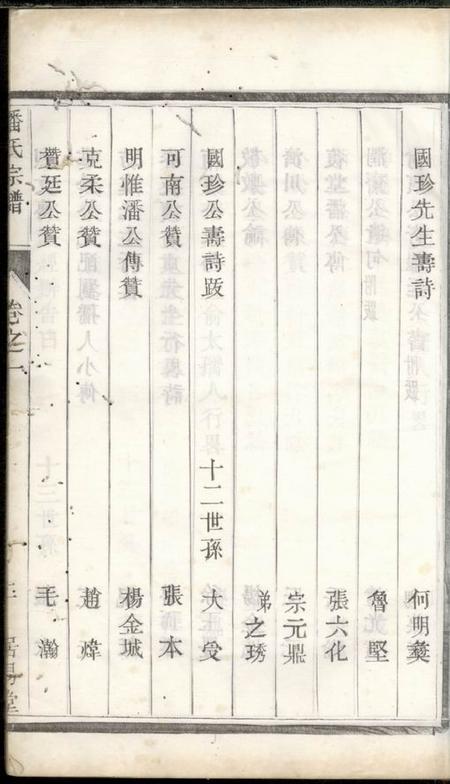 國珍先生壽詩 何明彝
魯堅
張六化
宗元鼎
弟之琇
國珍公壽詩跋 十二世孫 大受
可南公贊 張本
明惟潘公傳贊 楊金城
克柔公贊 趙煒
贊廷公贊 毛瀚
潘氏宗譜 卷之一